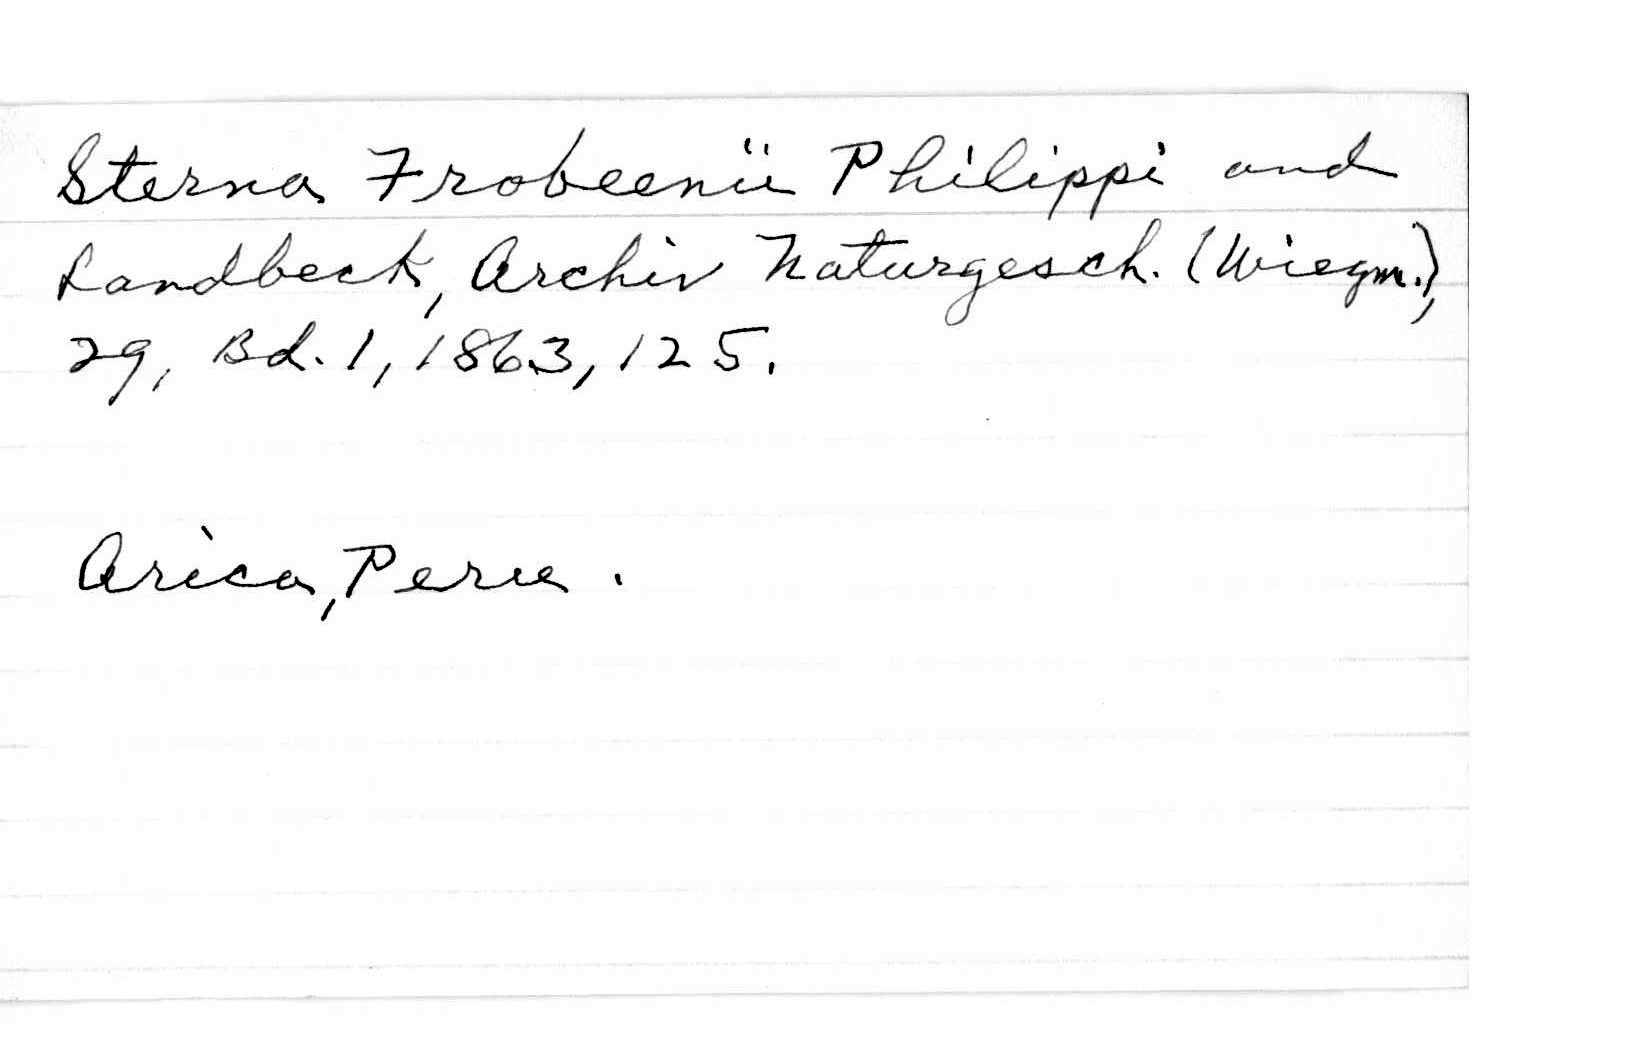 Sterna Frobeenii Philippi and
Landbeck, Archiv Naturgesch. (Wiegm.),
29, Bd. 1, 1863, 125.
Arica, Peru.